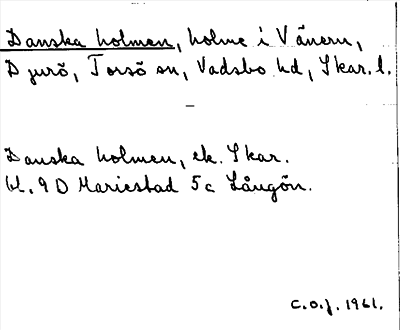 Danska holmen, holme i Vänern,
Djurö, Torsö sn, Vadsbo hd, Skar. l.
—
Danska holmen, ek. Skar.
bl. 9 D Mariestad 5 c Långön.
C.O.J. 1961.